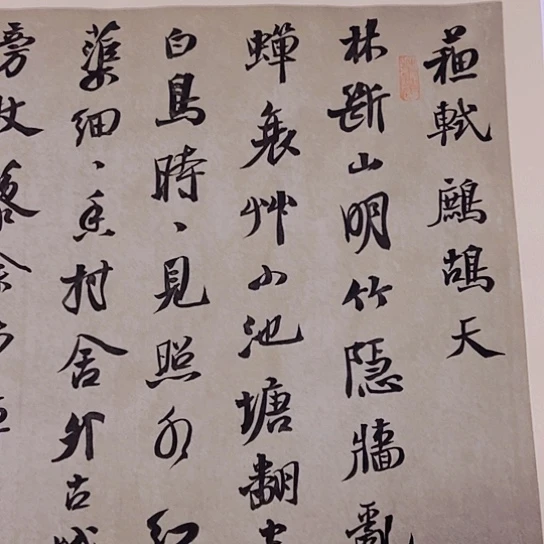 蘇軾鷓鴣天
林斷山明竹隱牆亂
蟬衰艸小池塘翻空
白鳥時、見照水紅
蕖細、香村舍外古城
旁杖藜徐步